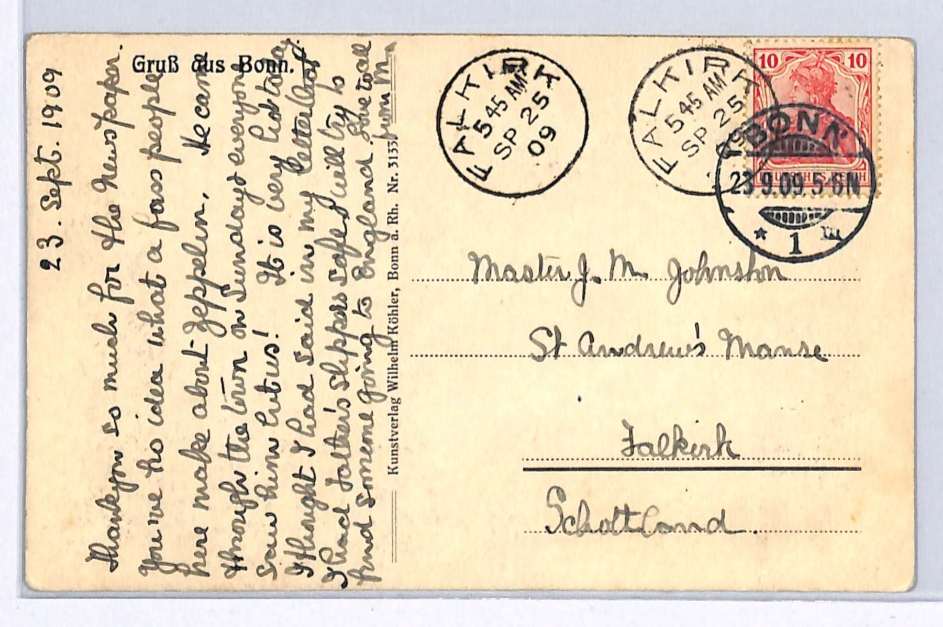 Gruß aus Bonn.
23. Sept. 1909
Thank you so much for the Newspaper.
You've no idea what a fass people
here make about Zeppelin. He came
through the town on Sunday & everyone
saw him but us! It is very hot today.
I thought I had said in my letter that
I had Father's slippers safe. I will try to
find someone going to England. Love to all
from M.
Kunstverlag Wilhelm Köhler, Bonn a. Rh. Nr. 3133
FALKIRK
545 AM
SP 25
09
FALKIRK
545 AM
SP 25
09
10 10
DEUTSCHES REICH
BONN
23.9.09.5-6N
* 1
Master J. M. Johnston
St Andrew's Manse
Falkirk
Schottland.